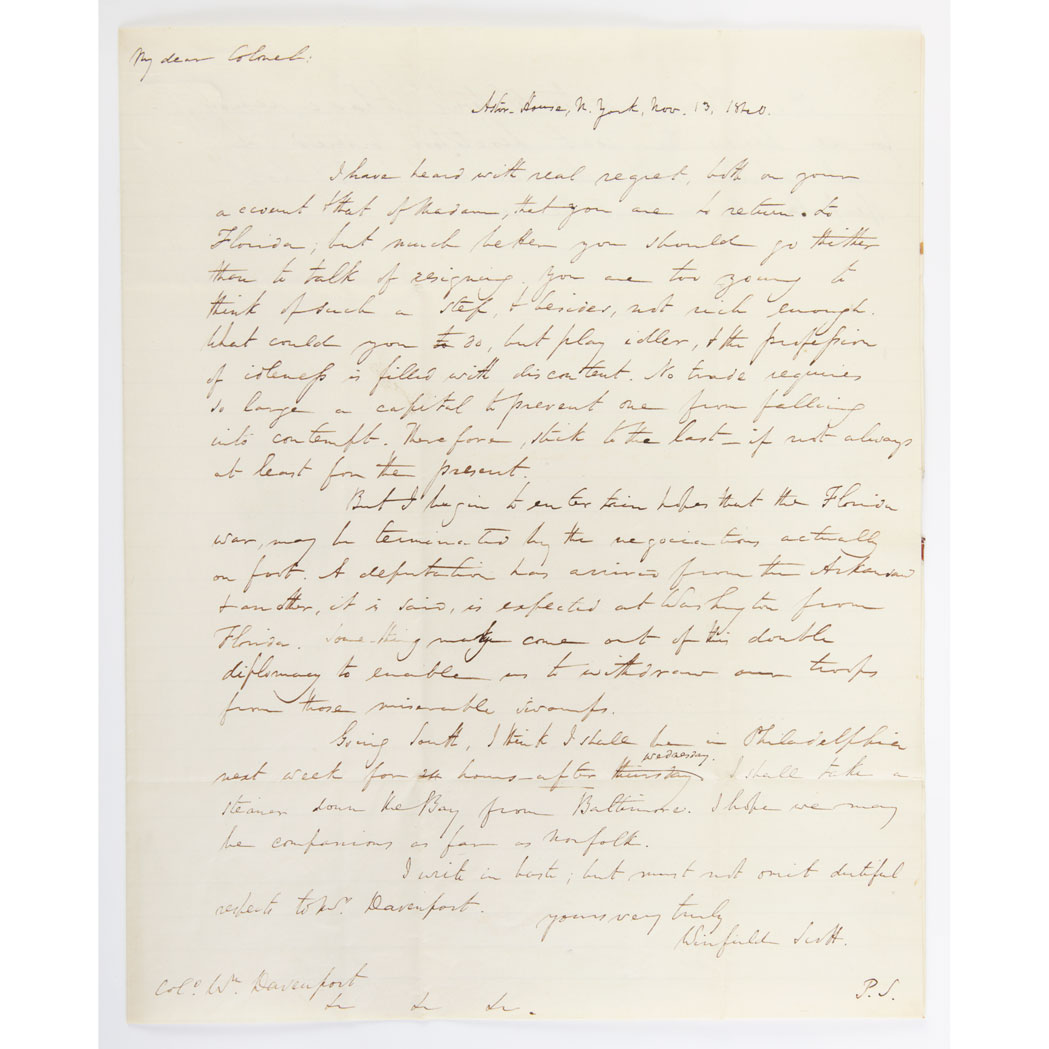 My dear Colonel:
Astor-House, N. York, Nov. 13, 1840.
I have heard with real regret, both on your
account & that of Madam, that you are to return to
Florida; but much better you should go thither
than to talk of resigning. You are too young to
think of such a step, & besides, not rich enough.
What could you do, but play idler, & the profession
of idleness is filled with discontent. No trade requires
so large a capital to prevent one from falling
into contempt. Therefore, stick to the last – if not always
at least for the present.
But I begin to entertain hopes that the Florida
war, may be terminated by the negociations actually
on foot. A deputation has arrived from the Arkansas
& another, it is said, is expected at Washington from
Florida. Something may come out of this double
diplomacy to enable us to withdraw our troops
from those miserable swamps.
Going South, I think I shall be in Philadelphia
wednesday.
next week for 24 hours – after thursday I shall take a
steamer down the Bay from Baltimore. I hope we may
be companions as far as Norfolk.
I write in haste; but must not omit dutiful
respects to Mrs. Davenport.
yours very truly
Winfield Scott.
Colo. Wm. Davenport
&c &c &c.
P.S.